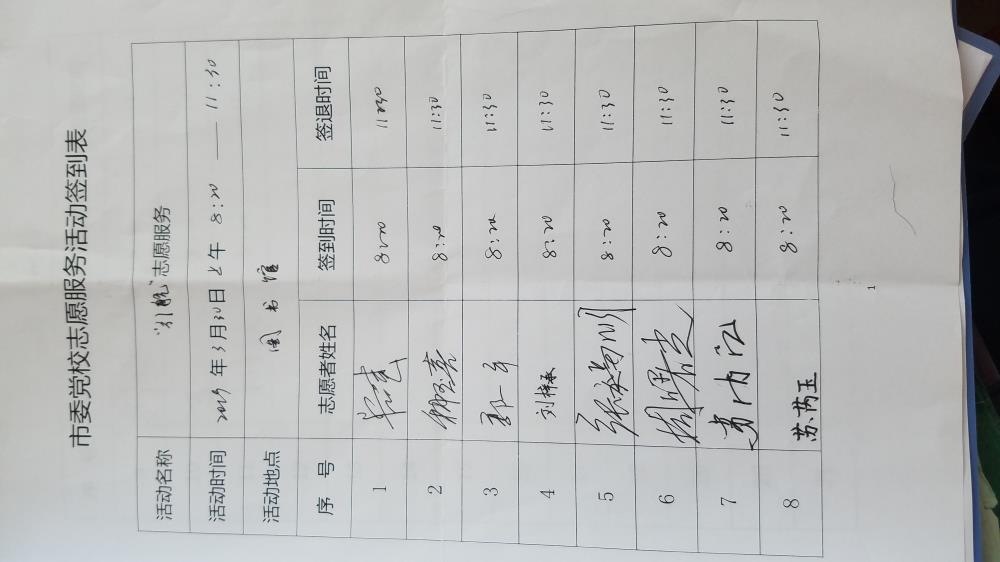 市委党校志愿服务活动签到表
活动名称 "引航"志愿服务
活动时间 2019年3月30日上午 8:20 —— 11:30
活动地点 图书馆
序 号 志愿者姓名 签到时间 签退时间
1 8:20 11:30
2 8:20 11:30
3 8:20 11:30
4 刘梓承 8:20 11:30
5 8:20 11:30
6 8:20 11:30
7 8:20 11:30
8 苏芮玉 8:20 11:30
1